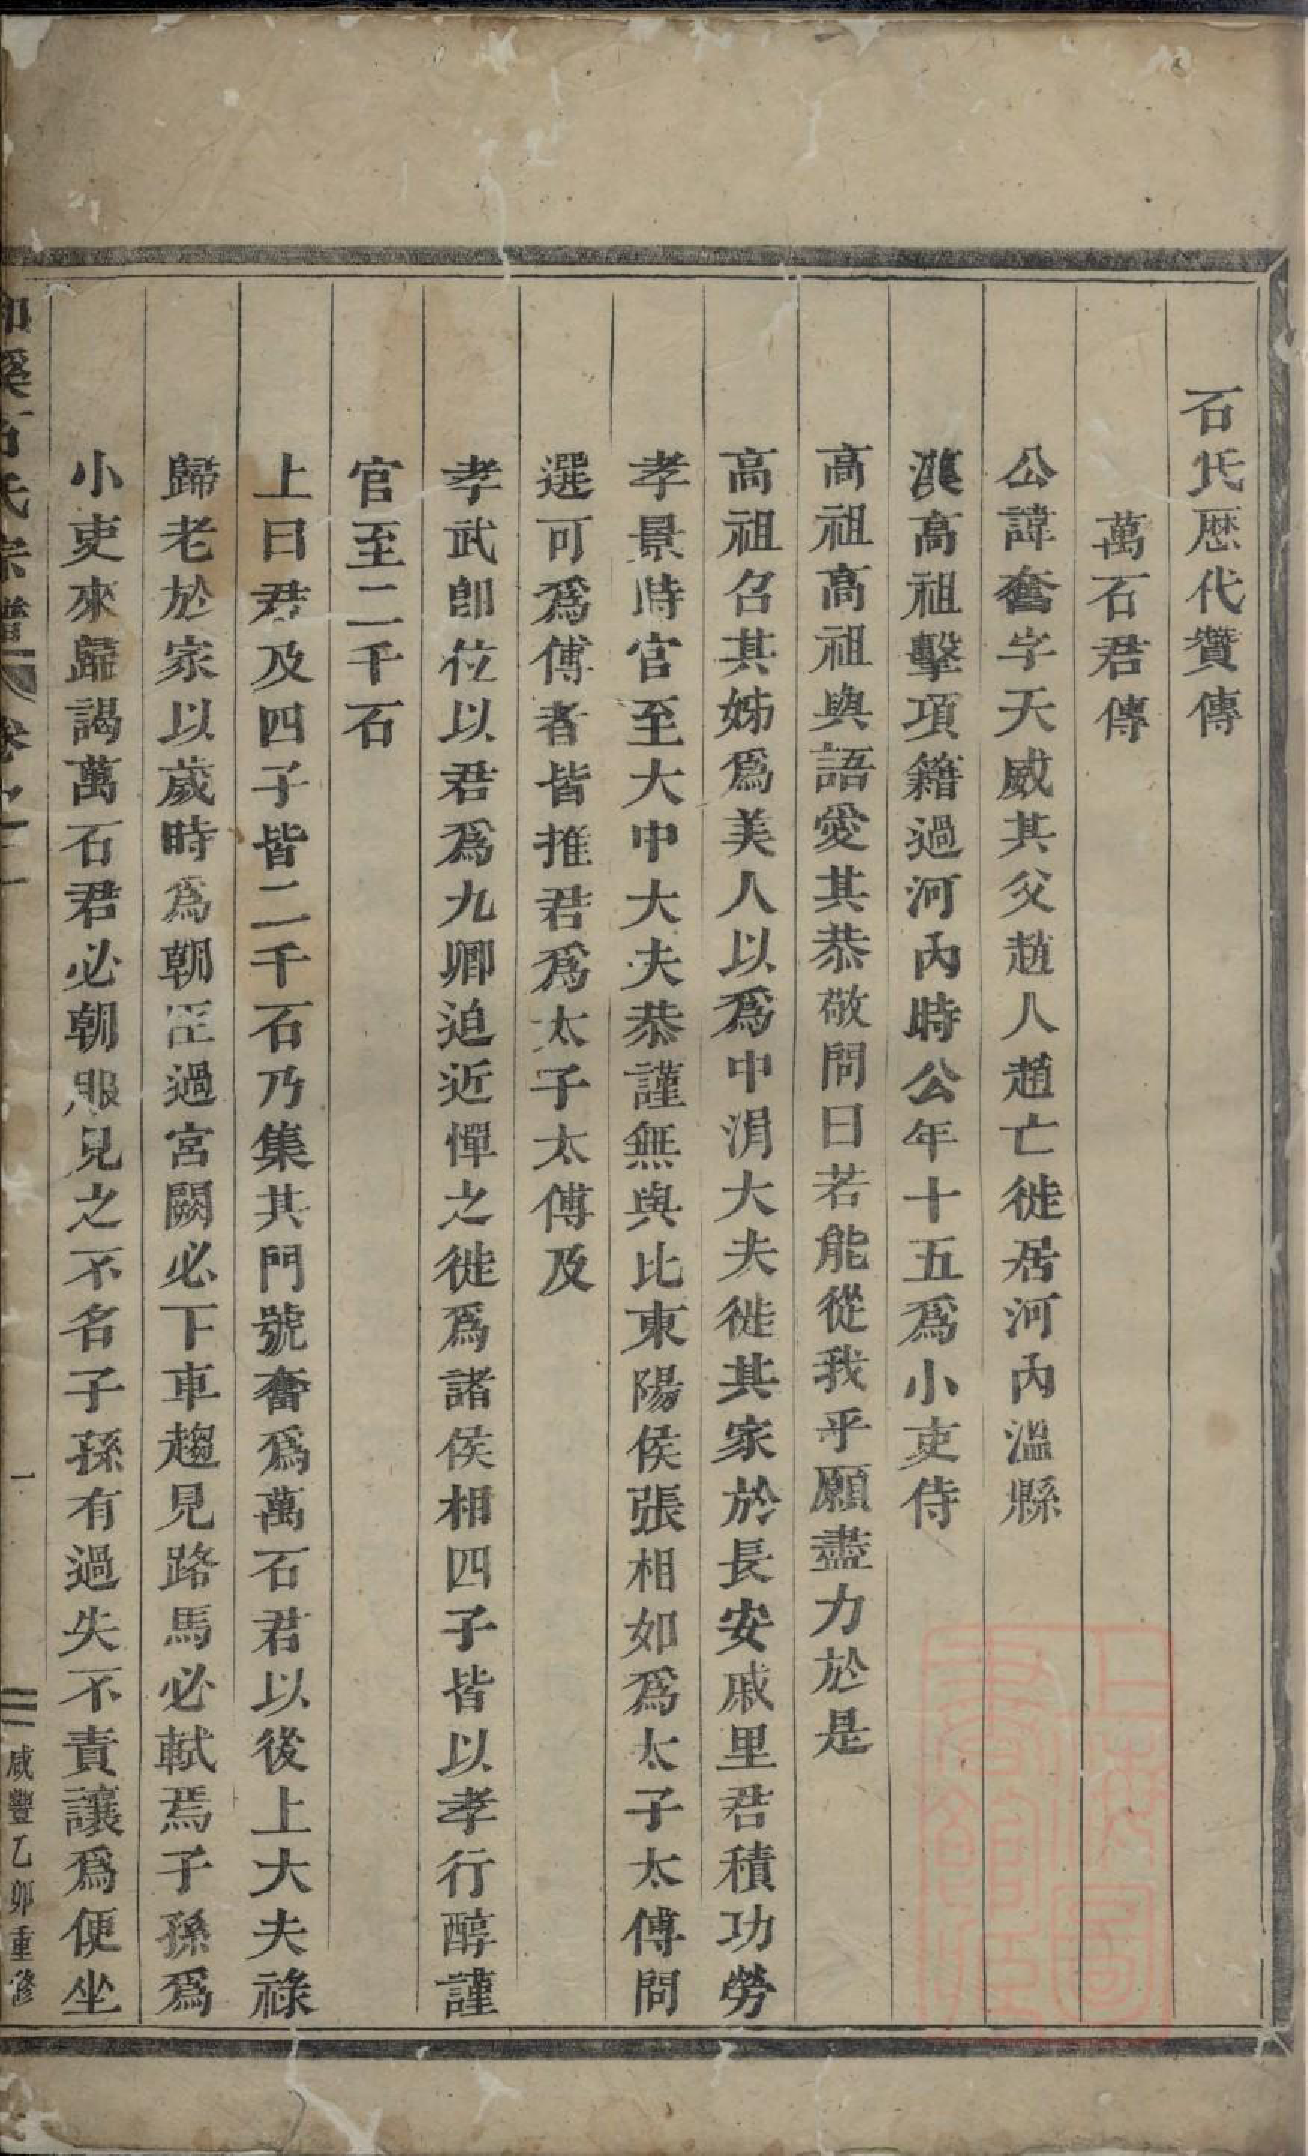 石氏歷代贊傳
萬石君傳
公諱奮字天威其父趙人趙亡徙居河內溫縣
漢高祖擊項籍過河內時公年十五爲小吏侍
高祖高祖與語愛其恭敬問曰若能從我乎願盡力於是
高祖召其姊爲美人以爲中涓大夫徙其家於長安戚里君積功勞
孝景時官至大中大夫恭謹無與比東陽侯張相如爲太子太傅問
選可爲傅者皆推君爲太子太傅及
孝武卽位以君爲九卿迫近憚之徙爲諸侯相四子皆以孝行醇謹
官至二千石
上曰君及四子皆二千石乃集其門號奮爲萬石君以後上大夫祿
歸老於家以歲時爲朝臣過宮闕必下車趨見路馬必軾焉子孫爲
小吏來歸謁萬石君必朝服見之不名子孫有過失不責讓爲便坐
石氏宗譜 卷之一
一
咸豐乙卯重修
上海圖書館藏